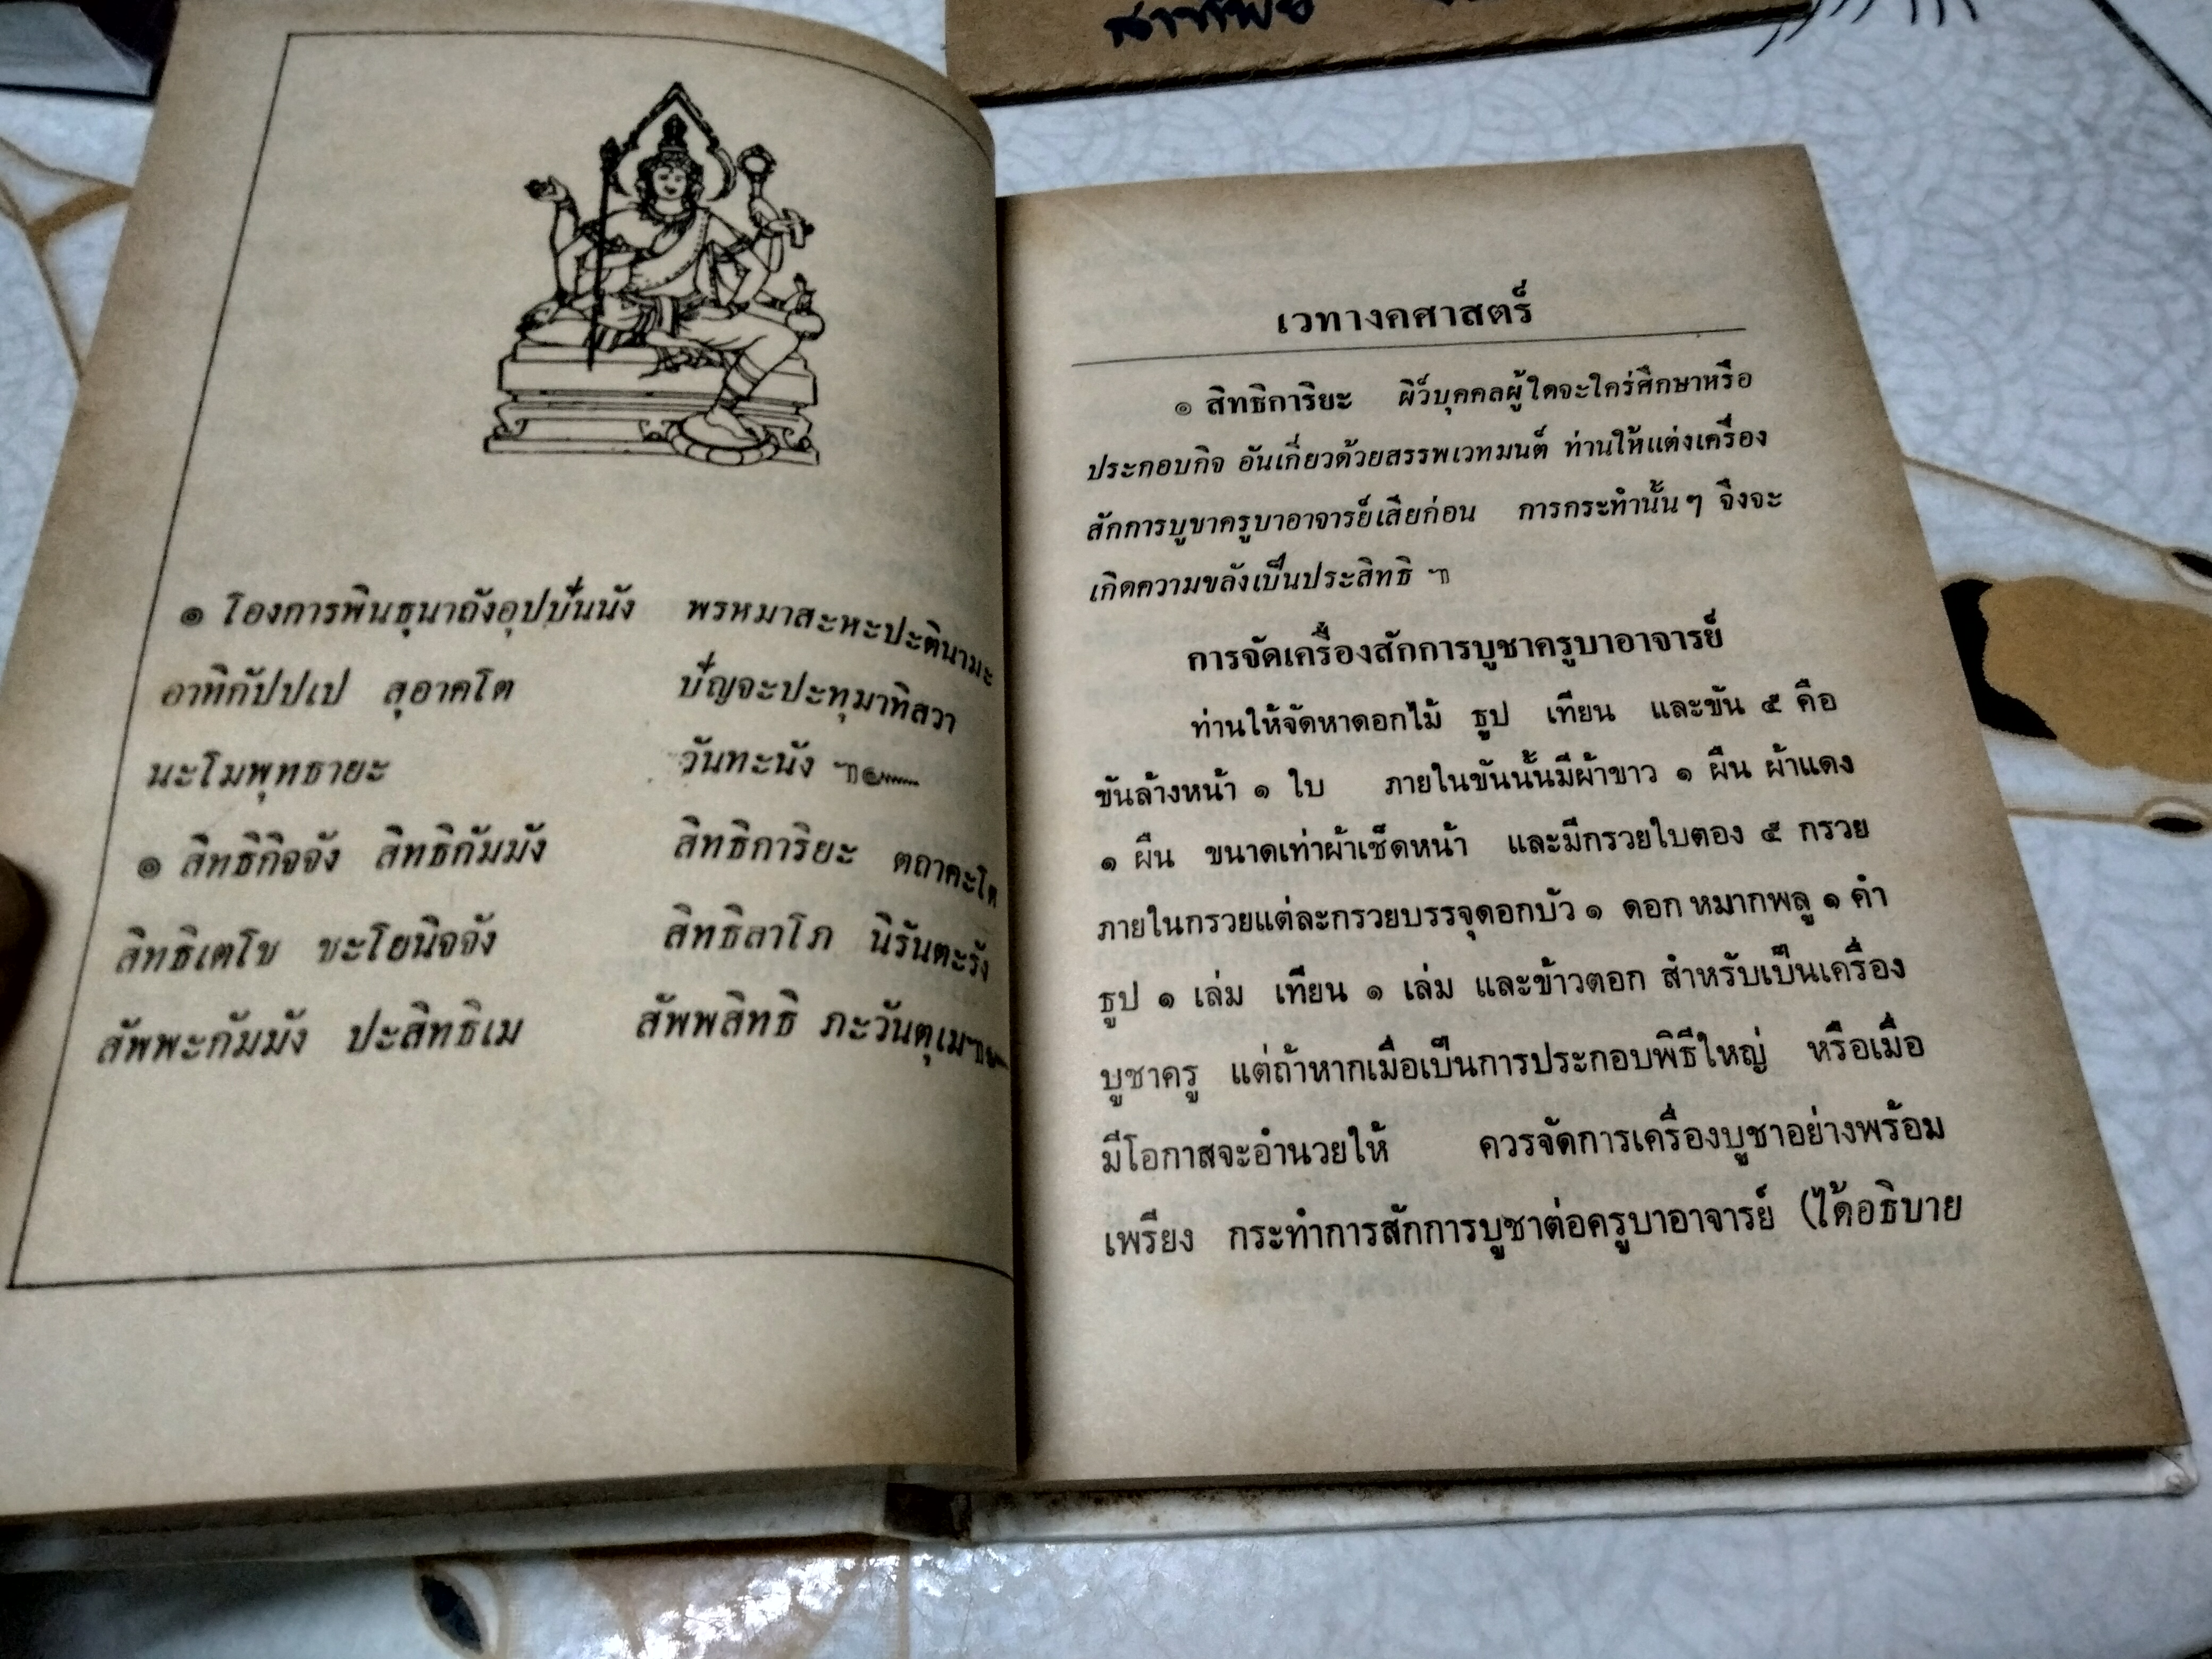 ๏ โองการพินธุนาถังอุปปั่นนัง พรหมาสะหะปะตินามะ
อาทิกัปปเป สุอาคโต ปัญจะปะทุมาทิสวา
นะโมพุทธายะ วันทะนัง ฯ๛
๏ สิทธิกิจจัง สิทธิกัมมัง สิทธิการิยะ ตถาคะโต
สิทธิเตโช ชะโยนิจจัง สิทธิลาโภ นิรันตะรัง
สัพพะกัมมัง ปะสิทธิเม สัพพสิทธิ ภะวันตุเมฯ๛
เวทางคศาสตร์
๏ สิทธิการิยะ ผิว็บุคคลผู้ใดจะใคร่ศึกษาหรือ
ประกอบกิจ อันเกี่ยวด้วยสรรพเวทมนต์ ท่านให้แต่งเครื่อง
สักการบูชาครูบาอาจารย์เสียก่อน การกระทำนั้นๆ จึงจะ
เกิดความขลังเป็นประสิทธิ ฯ
การจัดเครื่องสักการบูชาครูบาอาจารย์
ท่านให้จัดหาดอกไม้ ธูป เทียน และขัน ๕ คือ
ขันล้างหน้า ๑ ใบ ภายในขันนั้นมีผ้าขาว ๑ ผืน ผ้าแดง
๑ ผืน ขนาดเท่าผ้าเช็ดหน้า และมีกรวยใบตอง ๕ กรวย
ภายในกรวยแต่ละกรวยบรรจุดอกบัว ๑ ดอก หมากพลู ๑ คำ
ธูป ๑ เล่ม เทียน ๑ เล่ม และข้าวตอก สำหรับเป็นเครื่อง
บูชาครู แต่ถ้าหากเมื่อเป็นการประกอบพิธีใหญ่ หรือเมื่อ
มีโอกาสจะอำนวยให้ ควรจัดการเครื่องบูชาอย่างพร้อม
เพรียง กระทำการสักการบูชาต่อครูบาอาจารย์ (ได้อธิบาย